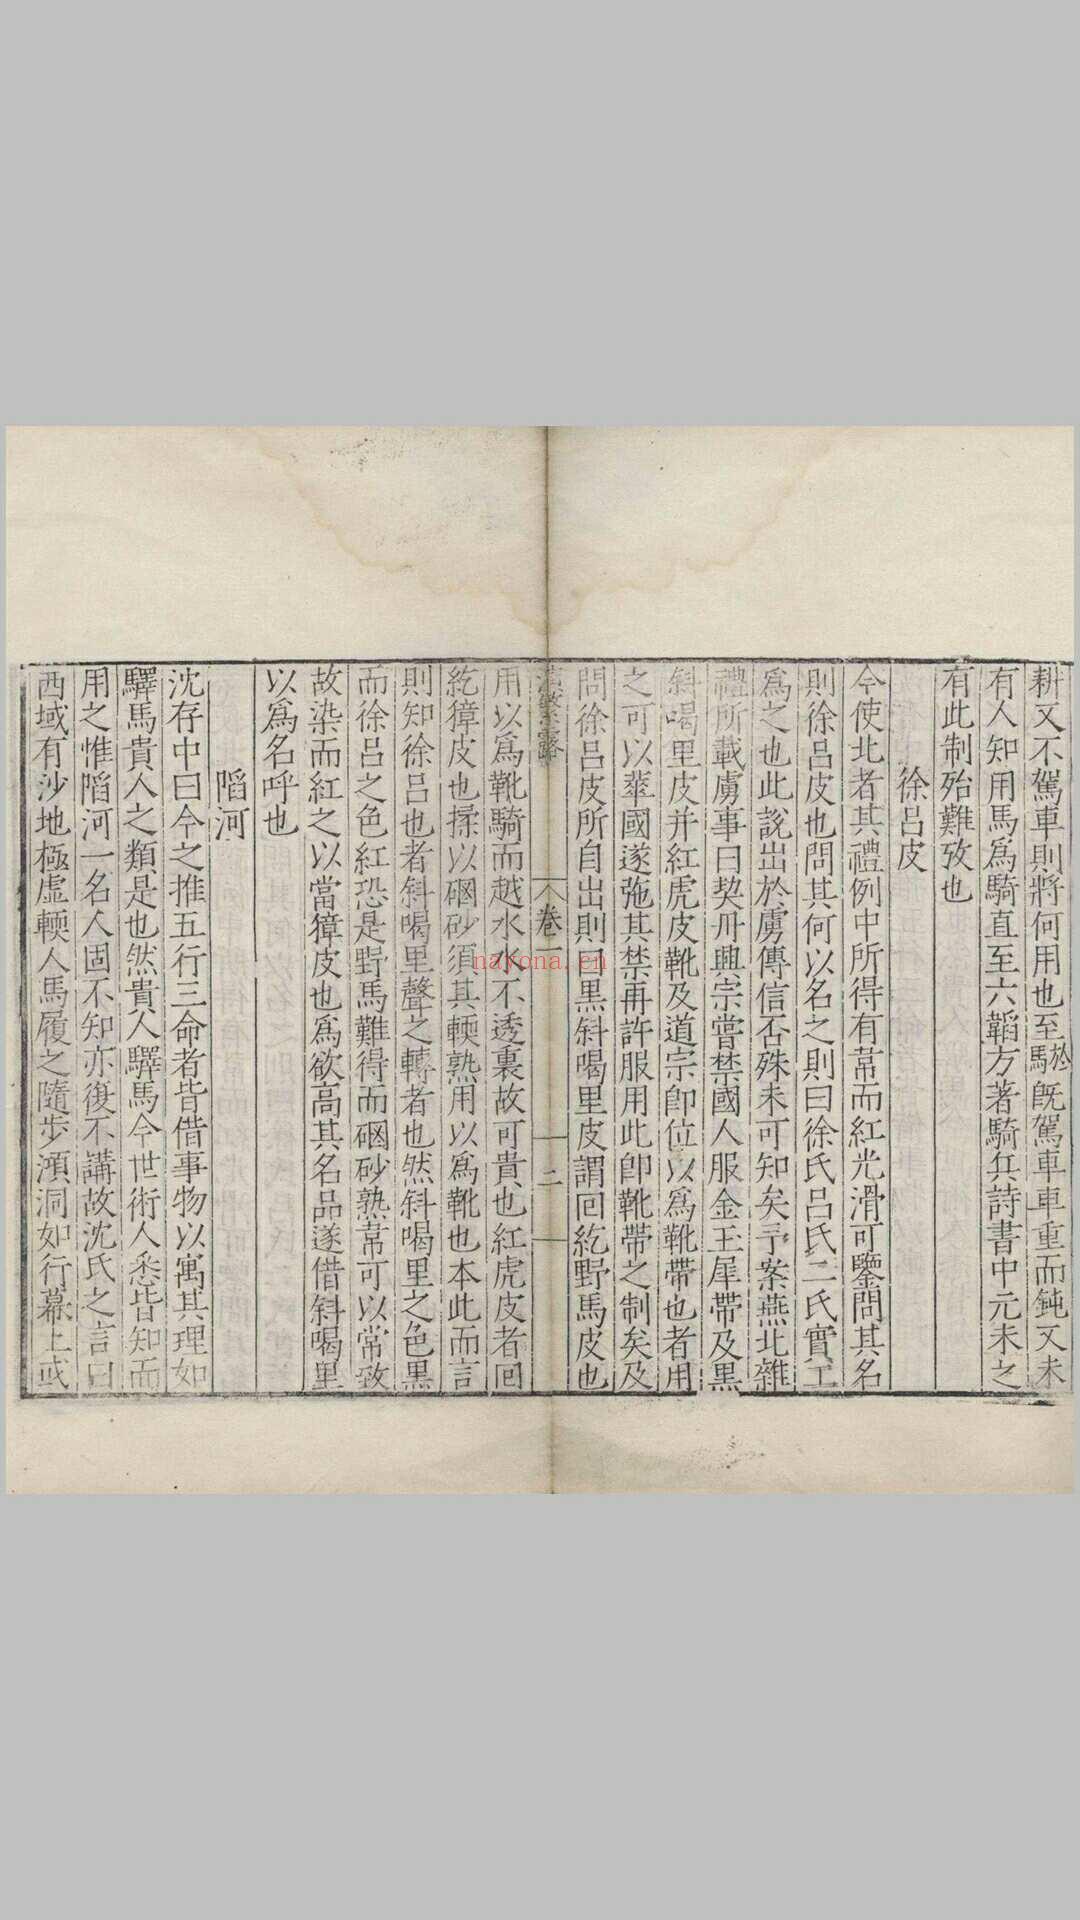 耕又不駕車則將何用也至於駒既駕車車重而鈍又未
有人知用馬爲騎直至六韜方著騎兵詩書中元未之
有此制殆難攷也
徐呂皮
今使北者其禮例中所得有韋而紅光滑可鑒問其名
則徐呂皮也問其何以名之則曰徐氏呂氏二氏實工
爲之也此說出於虜傳信否殊未可知矣予案燕北雜
禮所載虜事曰契丹興宗嘗禁國人服金玉犀帶及黑
斜喝里皮并紅虎皮靴及道宗卽位以爲靴帶也者用
之可以華國遂弛其禁再許服用此卽靴帶之制矣及
問徐呂皮所自出則曰黑斜喝里皮謂回紇野馬皮也
卷一
二
用以爲靴騎而越水水不透裏故可貴也紅虎皮者回
紇獐皮也揉以硇砂須其輭熟用以爲靴也本此而言
則知徐呂也者斜喝里聲之轉者也然斜喝里之色黑
而徐呂之色紅恐是野馬難得而硇砂熟韋可以常致
故染而紅之以當獐皮也爲欲高其名品遂借斜喝里
以爲名呼也
䧟河
沈存中曰今之推五行三命者皆借事物以寓其理如
驛馬貴人之類是也然貴人驛馬今世術人悉皆知而
用之惟䧟河一名人固不知亦復不講故沈氏之言曰
西域有沙地極虛輭人馬履之隨步澒洞如行幕上或
nayona.cn